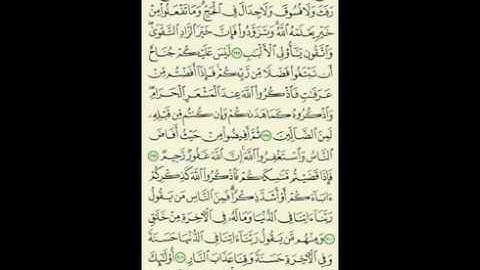 رَفَثَ وَلَا فُسُوقَ وَلَا جِدَالَ فِي الْحَجِّ وَمَا تَفْعَلُوا مِنْ
خَيْرٍ يَعْلَمْهُ اللَّهُ وَتَزَوَّدُوا فَإِنَّ خَيْرَ الزَّادِ التَّقْوَىٰ
وَاتَّقُونِ يَا أُولِي الْأَلْبَابِ ﴿١٩٧﴾ لَيْسَ عَلَيْكُمْ جُنَاحٌ
أَن تَبْتَغُوا فَضْلًا مِّن رَّبِّكُمْ فَإِذَا أَفَضْتُم مِّنْ
عَرَفَاتٍ فَاذْكُرُوا اللَّهَ عِندَ الْمَشْعَرِ الْحَرَامِ
وَاذْكُرُوهُ كَمَا هَدَاكُمْ وَإِن كُنتُم مِّن قَبْلِهِ
لَمِنَ الضَّالِّينَ ﴿١٩٨﴾ ثُمَّ أَفِيضُوا مِنْ حَيْثُ أَفَاضَ
النَّاسُ وَاسْتَغْفِرُوا اللَّهَ إِنَّ اللَّهَ غَفُورٌ رَّحِيمٌ ﴿١٩٩﴾
فَإِذَا قَضَيْتُم مَّنَاسِكَكُمْ فَاذْكُرُوا اللَّهَ كَذِكْرِكُمْ
آبَاءَكُمْ أَوْ أَشَدَّ ذِكْرًا فَمِنَ النَّاسِ مَن يَقُولُ
رَبَّنَا آتِنَا فِي الدُّنْيَا وَمَا لَهُ فِي الْآخِرَةِ مِنْ خَلَاقٍ
﴿٢٠٠﴾ وَمِنْهُم مَّن يَقُولُ رَبَّنَا آتِنَا فِي الدُّنْيَا حَسَنَةً
وَفِي الْآخِرَةِ حَسَنَةً وَقِنَا عَذَابَ النَّارِ ﴿٢٠١﴾ أُولَٰئِكَ